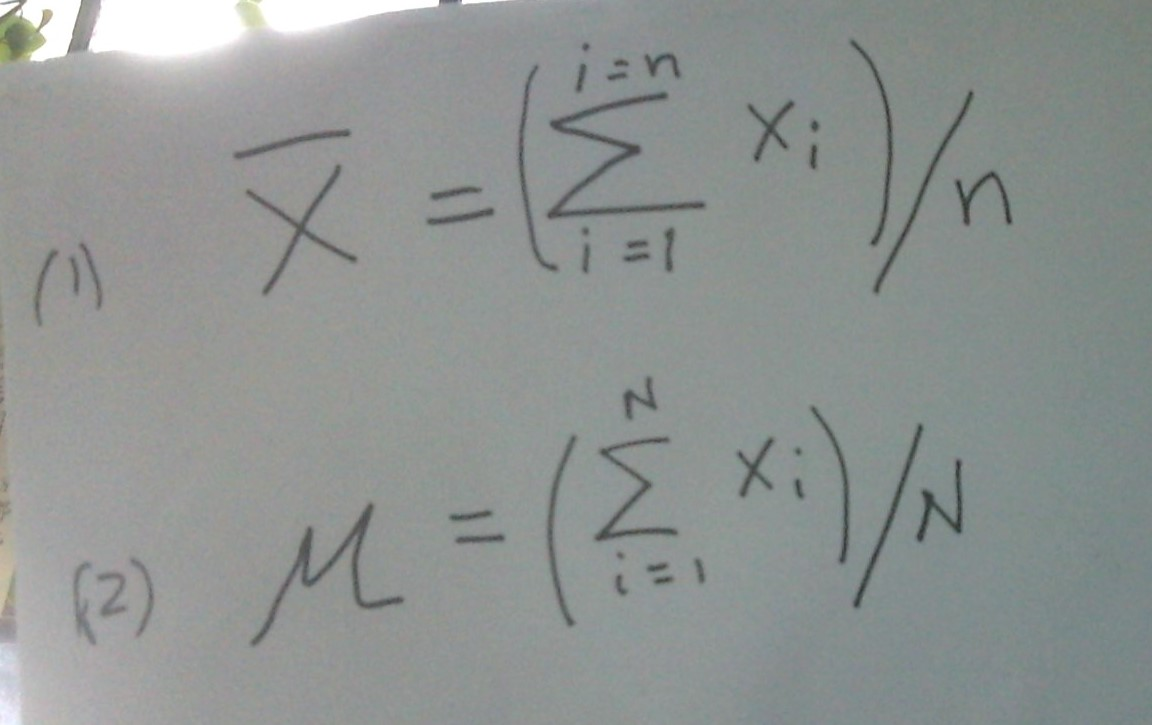 (1) X̅ = (∑_{i=1}^{i=n} x_i)/n
(2) μ = (∑_{i=1}^{N} x_i)/N